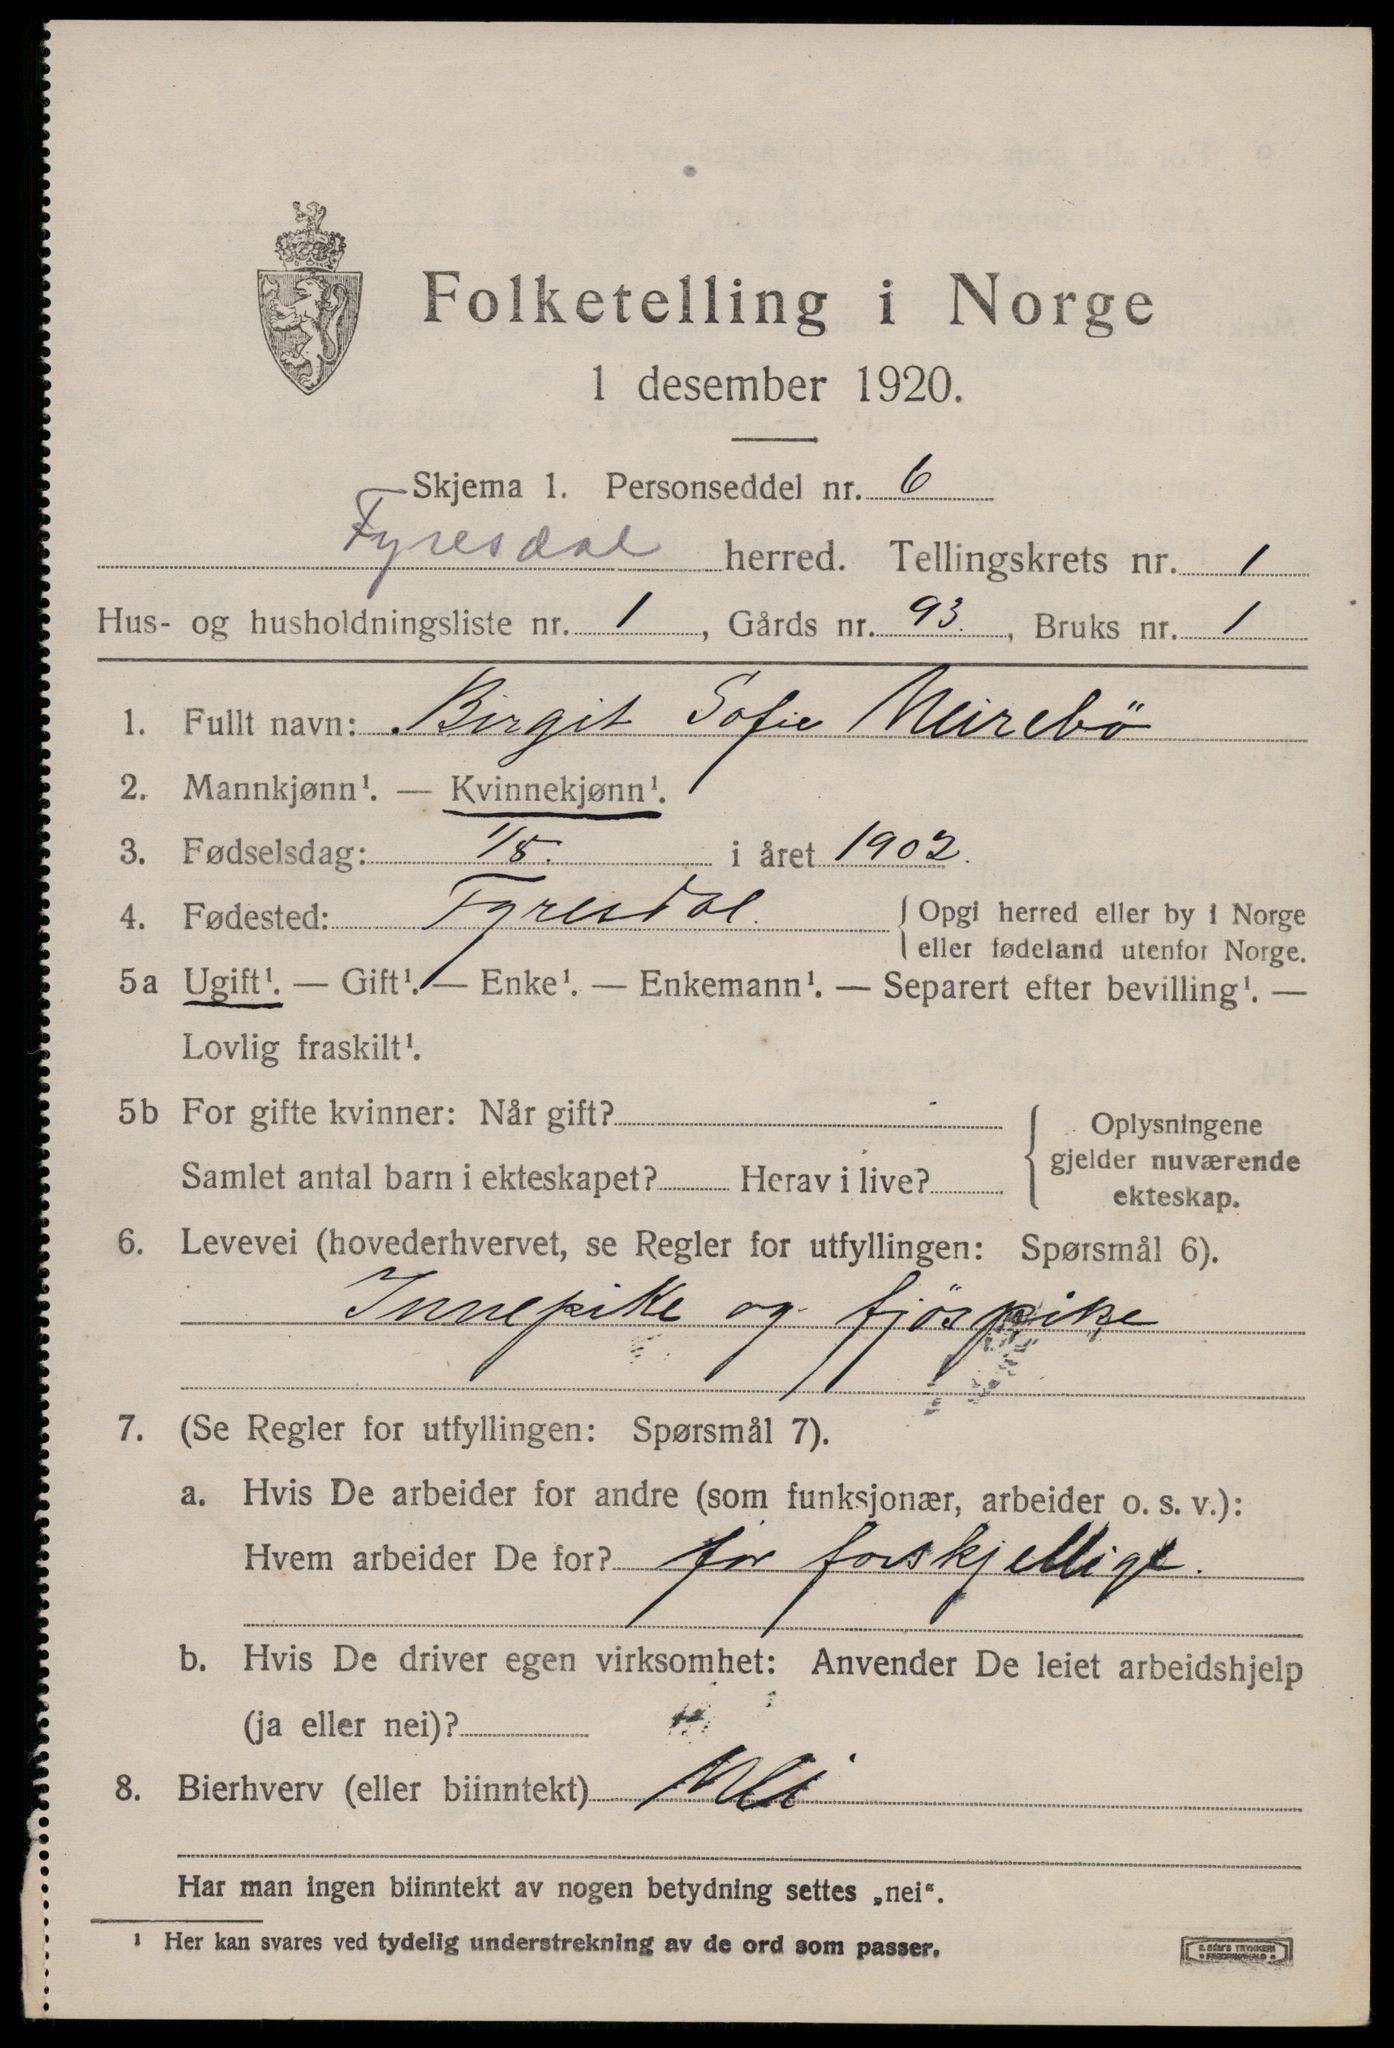 Folketelling i Norge
1 desember 1920.
Skjema 1. Personseddel nr. 6
Fyresdal herred. Tellingskrets nr. 1
Hus- og husholdningsliste nr. 1, Gårds nr. 93., Bruks nr. 1
1. Fullt navn: Birgit Sofie Meirebö
2. Mannkjønn¹. — Kvinnekjønn¹.
3. Fødselsdag: 1/8. i året 1902.
4. Fødested: Fyresdal. { Opgi herred eller by i Norge
eller fødeland utenfor Norge.
5a Ugift¹. — Gift¹. — Enke¹. — Enkemann¹. — Separert efter bevilling¹. —
Lovlig fraskilt¹.
5b For gifte kvinner: Når gift?
Samlet antal barn i ekteskapet? Herav i live?
{ Oplysningene
gjelder nuværende
ekteskap.
6. Levevei (hovederhvervet, se Regler for utfyllingen: Spørsmål 6).
Innepike og fjöspike
7. (Se Regler for utfyllingen: Spørsmål 7).
a. Hvis De arbeider for andre (som funksjonær, arbeider o. s. v.):
Hvem arbeider De for? for forskjellige.
b. Hvis De driver egen virksomhet: Anvender De leiet arbeidshjelp
(ja eller nei)?
8. Bierhverv (eller biinntekt) Nei
Har man ingen biinntekt av nogen betydning settes „nei“.
¹ Her kan svares ved tydelig understrekning av de ord som passer.